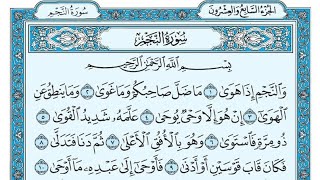 الجزء السابع والعشرون
سورة النجم
سُورَةُ النَّجْمِ
بِسْمِ اللَّهِ الرَّحْمَٰنِ الرَّحِيمِ
وَالنَّجْمِ إِذَا هَوَىٰ ١ مَا ضَلَّ صَاحِبُكُمْ وَمَا غَوَىٰ ٢ وَمَا يَنطِقُ عَنِ
الْهَوَىٰ ٣ إِنْ هُوَ إِلَّا وَحْيٌ يُوحَىٰ ٤ عَلَّمَهُ شَدِيدُ الْقُوَىٰ ٥
ذُو مِرَّةٍ فَاسْتَوَىٰ ٦ وَهُوَ بِالْأُفُقِ الْأَعْلَىٰ ٧ ثُمَّ دَنَا فَتَدَلَّىٰ ٨
فَكَانَ قَابَ قَوْسَيْنِ أَوْ أَدْنَىٰ ٩ فَأَوْحَىٰ إِلَىٰ عَبْدِهِ مَا أَوْحَىٰ ١٠